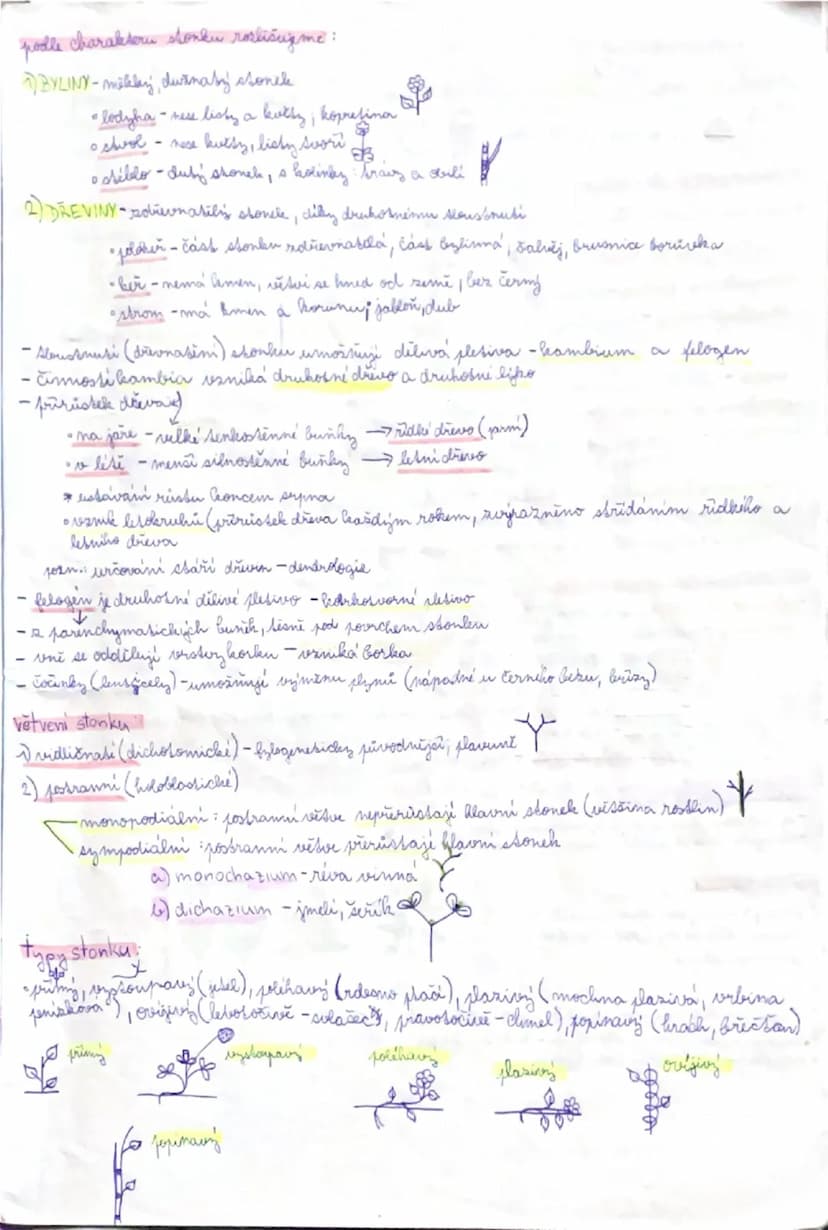 podle charakteru stonku rozlišujeme:
1) BYLINY - měkký, dužnatý stonek
• lodyha - nese listy a květy, kopretina
• stvol - nese květy, listy tvoří
• stéblo - dutý stonek, s kolínky: trávy a obilí
2) DŘEVINY - zdřevnatělý stonek, díky druhotnému tloustnutí
• polokeř - část stonku zdřevnatělá, část bylinná, šalvěj, brusnice borůvka
• keř - nemá kmen, větví se hned od země, bez černý
• strom - má kmen a korunu; jabloň, dub
- tloustnutí (dřevnatění) stonku umožňují dělivá pletiva - kambium a felogen
- činností kambia vzniká druhotné dřevo a druhotné lýko
- přírůstek dřeva
• na jaře - velké tenkostěnné buňky → řídké dřevo (jarní)
• v létě - menší silnostěnné buňky → letní dřevo
• ustávání růstu koncem srpna
• vznik letokruhů (přírůstek dřeva každým rokem, zvýrazněno střídáním řídkého a
letního dřeva
pozn.: určování stáří dřevin - dendrologie
- felogén je druhotné dělivé pletivo - korkotvorné pletivo
- z parenchymatických buněk, těsně pod povrchem stonku
- vně se oddělují vrstvy korku - vzniká borka
- čočinky (lenticely) - umožňují výměnu plynů (nápadné u černého bezu, břízy)
větvení stonku:
1) vidličnaté (dichotomické) - fylogeneticky původnější; plavuně
2) postranní (holoblastické)
monopodiální: postranní větve nepřerůstají hlavní stonek (většina rostlin)
sympodiální: postranní větve přerůstají hlavní stonek
a) monochazium - réva vinná
b) dichazium - jmelí, šeřík
typy stonku:
• přímý, vystoupavý (jetel), poléhavý (rdesno ptačí), plazivý (mochna plazivá, vrbina
penízková), ovíjivý (levotočivě - svlačec, pravotočivě - chmel), popínavý (hrách, břečťan)
přímý vystoupavý poléhavý plazivý ovíjivý
popínavý